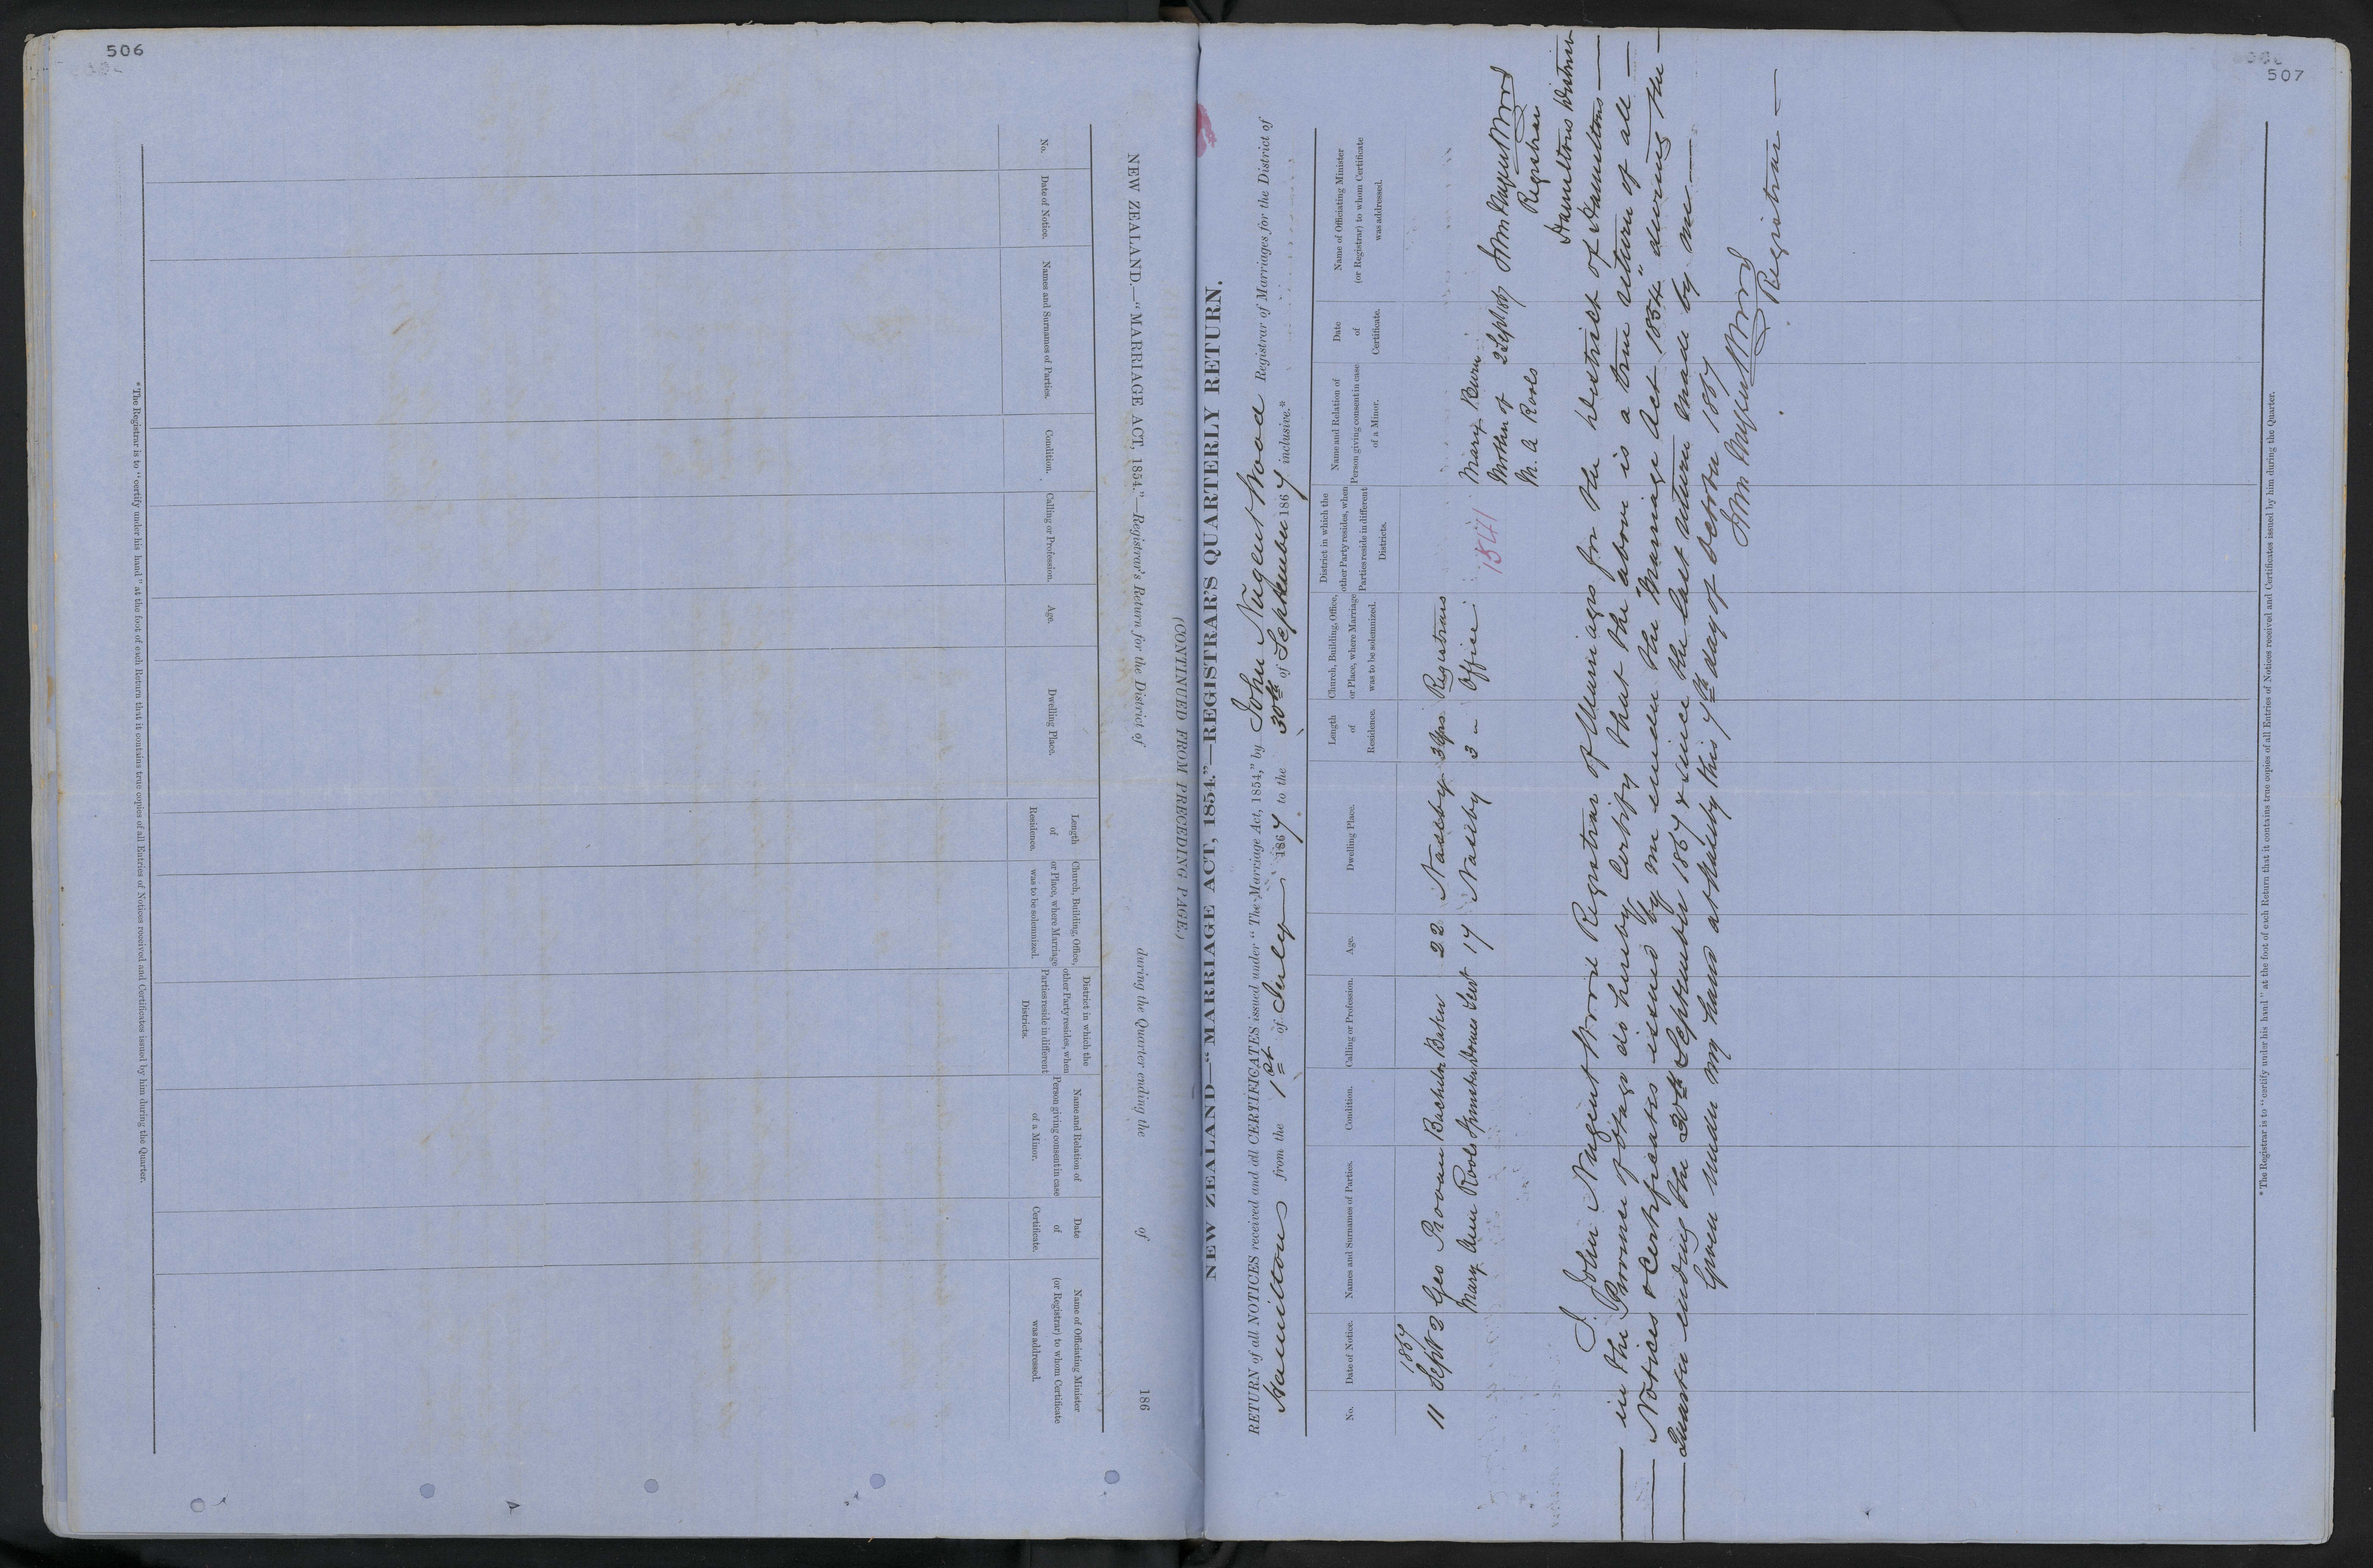 506
(CONTINUED FROM PRECEDING PAGE.)
NEW ZEALAND.—"MARRIAGE ACT, 1854."—Registrar's Return for the District of during the Quarter ending the of 186
No.
Date of Notice.
Names and Surnames of Parties.
Condition.
Calling or Profession.
Age.
Dwelling Place.
Length
of
Residence.
Church, Building, Office,
or Place, where Marriage
was to be solemnized.
District in which the
other Party resides, when
Parties reside in different
Districts.
Name and Relation of
Person giving consent in case
of a Minor.
Date
of
Certificate.
Name of Officiating Minister
(or Registrar) to whom Certificate
was addressed.
*The Registrar is to "certify under his hand" at the foot of each Return that it contains true copies of all Entries of Notices received and Certificates issued by him during the Quarter.
507
NEW ZEALAND—"MARRIAGE ACT, 1854."—REGISTRAR'S QUARTERLY RETURN.
RETURN of all NOTICES received and all CERTIFICATES issued under "The Marriage Act, 1854," by John Nugent Wood Registrar of Marriages for the District of
Hamiltons from the 1st of July 1867 to the 30th of September 1867 inclusive.*
No.
Date of Notice.
Names and Surnames of Parties.
Condition.
Calling or Profession.
Age.
Dwelling Place.
Length
of
Residence.
Church, Building, Office,
or Place, where Marriage
was to be solemnized.
District in which the
other Party resides, when
Parties reside in different
Districts.
Name and Relation of
Person giving consent in case
of a Minor.
Date
of
Certificate.
Name of Officiating Minister
(or Registrar) to whom Certificate
was addressed.
1867
11 Sept 2 Geo Provan Bachelor Baker 22 Naseby 3 yrs Registrars
Mary Ann Rools Spinster Domes Sevt 17 Naseby 3 " Office
1541
Mary Burn
Mother of 2 Sept 1867 John Nugent Wood
M. A Rools Registrar
Hamiltons District
I John Nugent Wood Registrar of Marriages for the District of Hamiltons
in the Province of Otago do hereby Certify that the above is a true return of all
Notices & Certificates issued by me under the "Marriage Act 1854" during the
Quarter ending the 30th September 1867 & since the last return made by me
Given under my hand at Naseby this 7th day of October 1867
John Nugent Wood
Registrar
*The Registrar is to "certify under his hand" at the foot of each Return that it contains true copies of all Entries of Notices received and Certificates issued by him during the Quarter.